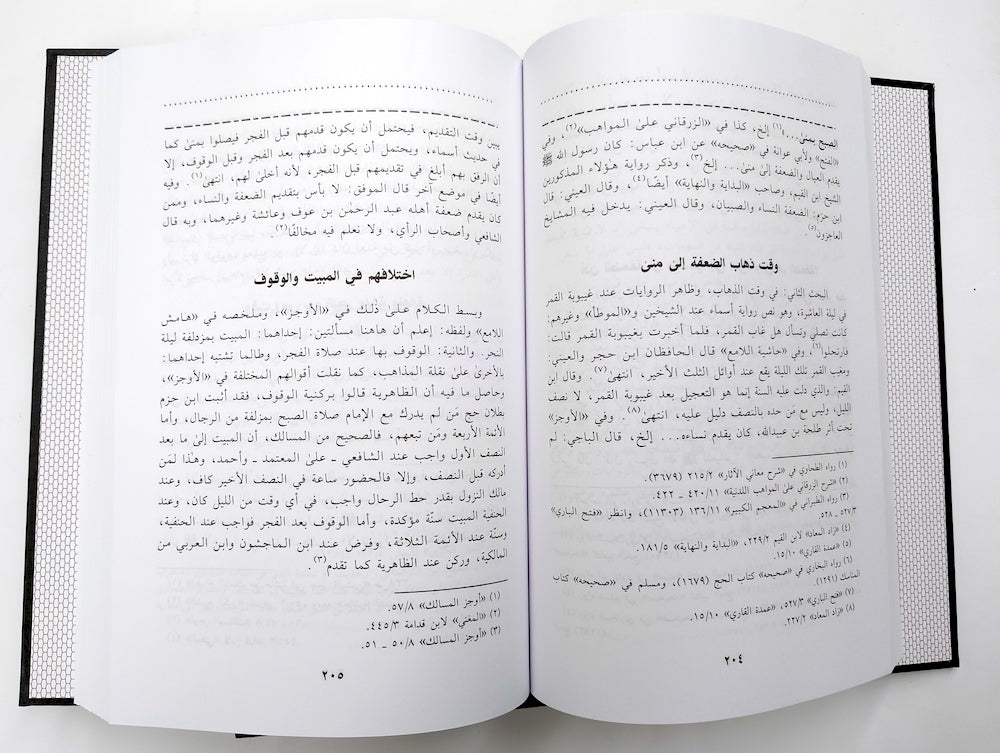 الصبح بمنىٰ...(١) إلخ، كذا في «الزرقاني علىٰ المواهب»(٢)، وفي
«الفتح» ولأبي عوانة في «صحيحه» عن ابن عباس: كان رسول الله ﷺ
يقدم العيال والضعفة إلىٰ منىٰ... إلخ(٣)، وذكر رواية هؤلاء المذكورين
الشيخ ابن القيم، وصاحب «البداية والنهاية» أيضًا(٤)، وقال العيني: قال
ابن حزم: الضعفة النساء والصبيان، وقال العيني: يدخل فيه المشايخ
العاجزون(٥).
وقت ذهاب الضعفة إلىٰ منىٰ
البحث الثاني: في وقت الذهاب، وظاهر الروايات عند غيبوبة القمر
في ليلة العاشرة، وهو نص رواية أسماء عند الشيخين و«الموطأ» وغيرهم:
كانت تصلي وتسأل هل غاب القمر، فلما أخبرت بغيبوبة القمر قالت:
فارتحلوا(٦)، وفي «حاشية اللامع» قال الحافظان ابن حجر والعيني:
ومغيب القمر تلك الليلة يقع عند أوائل الثلث الأخير، انتهىٰ(٧). وقال ابن
القيم: والذي دلت عليه السنة إنما هو التعجيل بعد غيبوبة القمر، لا نصف
الليل، وليس مع مَن حده بالنصف دليل عليه، انتهىٰ(٨). وفي «الأوجز»
تحت أثر طلحة بن عبيدالله، كان يقدم نساءه... إلخ، قال الباجي: لم
(١) رواه الطحاوي في «شرح معاني الآثار» ٢١٥/٢ (٣٦٧٩).
(٢) «شرح الزرقاني علىٰ المواهب اللدنية» ٤٢٠/١١ ـ ٤٢٢.
(٣) رواه الطبراني في «المعجم الكبير» ١٣٦/١١ (١١٣٠٣)، وانظر «فتح الباري»
٥٢٧/٣ ـ ٥٢٨.
(٤) «زاد المعاد» لابن القيم ٢٢٩/٢، «البداية والنهاية» ١٨١/٥.
(٥) «عمدة القاري» ١٥/١٠.
(٦) رواه البخاري في «صحيحه» كتاب الحج (١٦٧٩)، ومسلم في «صحيحه» كتاب
المناسك (١٢٩١).
(٧) «فتح الباري» ٥٢٧/٣، «عمدة القاري» ١٥/١٠.
(٨) «زاد المعاد» ٢٢٧/٢.
٢٠٤
يبين وقت التقديم، فيحتمل أن يكون قدمهم قبل الفجر فيصلوا بمنىٰ كما
في حديث أسماء، ويحتمل أن يكون قدمهم بعد الفجر وقبل الوقوف، إلا
إن الرفق بهم أبلغ في تقديمهم قبل الفجر، لأنه أخلىٰ لهم، انتهىٰ(١). وفيه
أيضًا في موضع آخر قال الموفق: لا بأس بتقديم الضعفة والنساء، وممن
كان يقدم ضعفة أهله عبد الرحمٰن بن عوف وعائشة وغيرهما، وبه قال
الشافعي وأصحاب الرأي، ولا نعلم فيه مخالفًا(٢).
اختلافهم في المبيت والوقوف
وبسط الكلام علىٰ ذلك في «الأوجز»، وملخصه في «هامش
اللامع» ولفظه: إعلم أن هاهنا مسألتين: إحداهما: المبيت بمزدلفة ليلة
النحر. والثانية: الوقوف بها عند صلاة الفجر، وطالما تشتبه إحداهما:
بالأخرىٰ علىٰ نقلة المذاهب، كما نقلت أقوالهم المختلفة في «الأوجز»،
وحاصل ما فيه أن الظاهرية قالوا بركنية الوقوف، فقد أثبت ابن حزم
بطلان حج مَن لم يدرك مع الإمام صلاة الصبح بمزلفة من الرجال، وأما
الأئمة الأربعة ومَن تبعهم، فالصحيح من المسالك، أن المبيت إلىٰ ما بعد
النصف الأول واجب عند الشافعي ـ علىٰ المعتمد ـ وأحمد، وهذا لمَن
أدركه قبل النصف، وإلا فالحضور ساعة في النصف الأخير كاف، وعند
مالك النزول بقدر حط الرحال واجب، في أي وقت من الليل كان، وعند
الحنفية المبيت سنّة مؤكدة، وأما الوقوف بعد الفجر فواجب عند الحنفية،
وسنّة عند الأئمة الثلاثة، وفرض عند ابن الماجشون وابن العربي من
المالكية، وركن عند الظاهرية كما تقدم(٣).
(١) «أوجز المسالك» ٥٧/٨.
(٢) «المغني» لابن قدامة ٤٤٥/٣.
(٣) «أوجز المسالك» ٥٠/٨ ـ ٥١.
٢٠٥